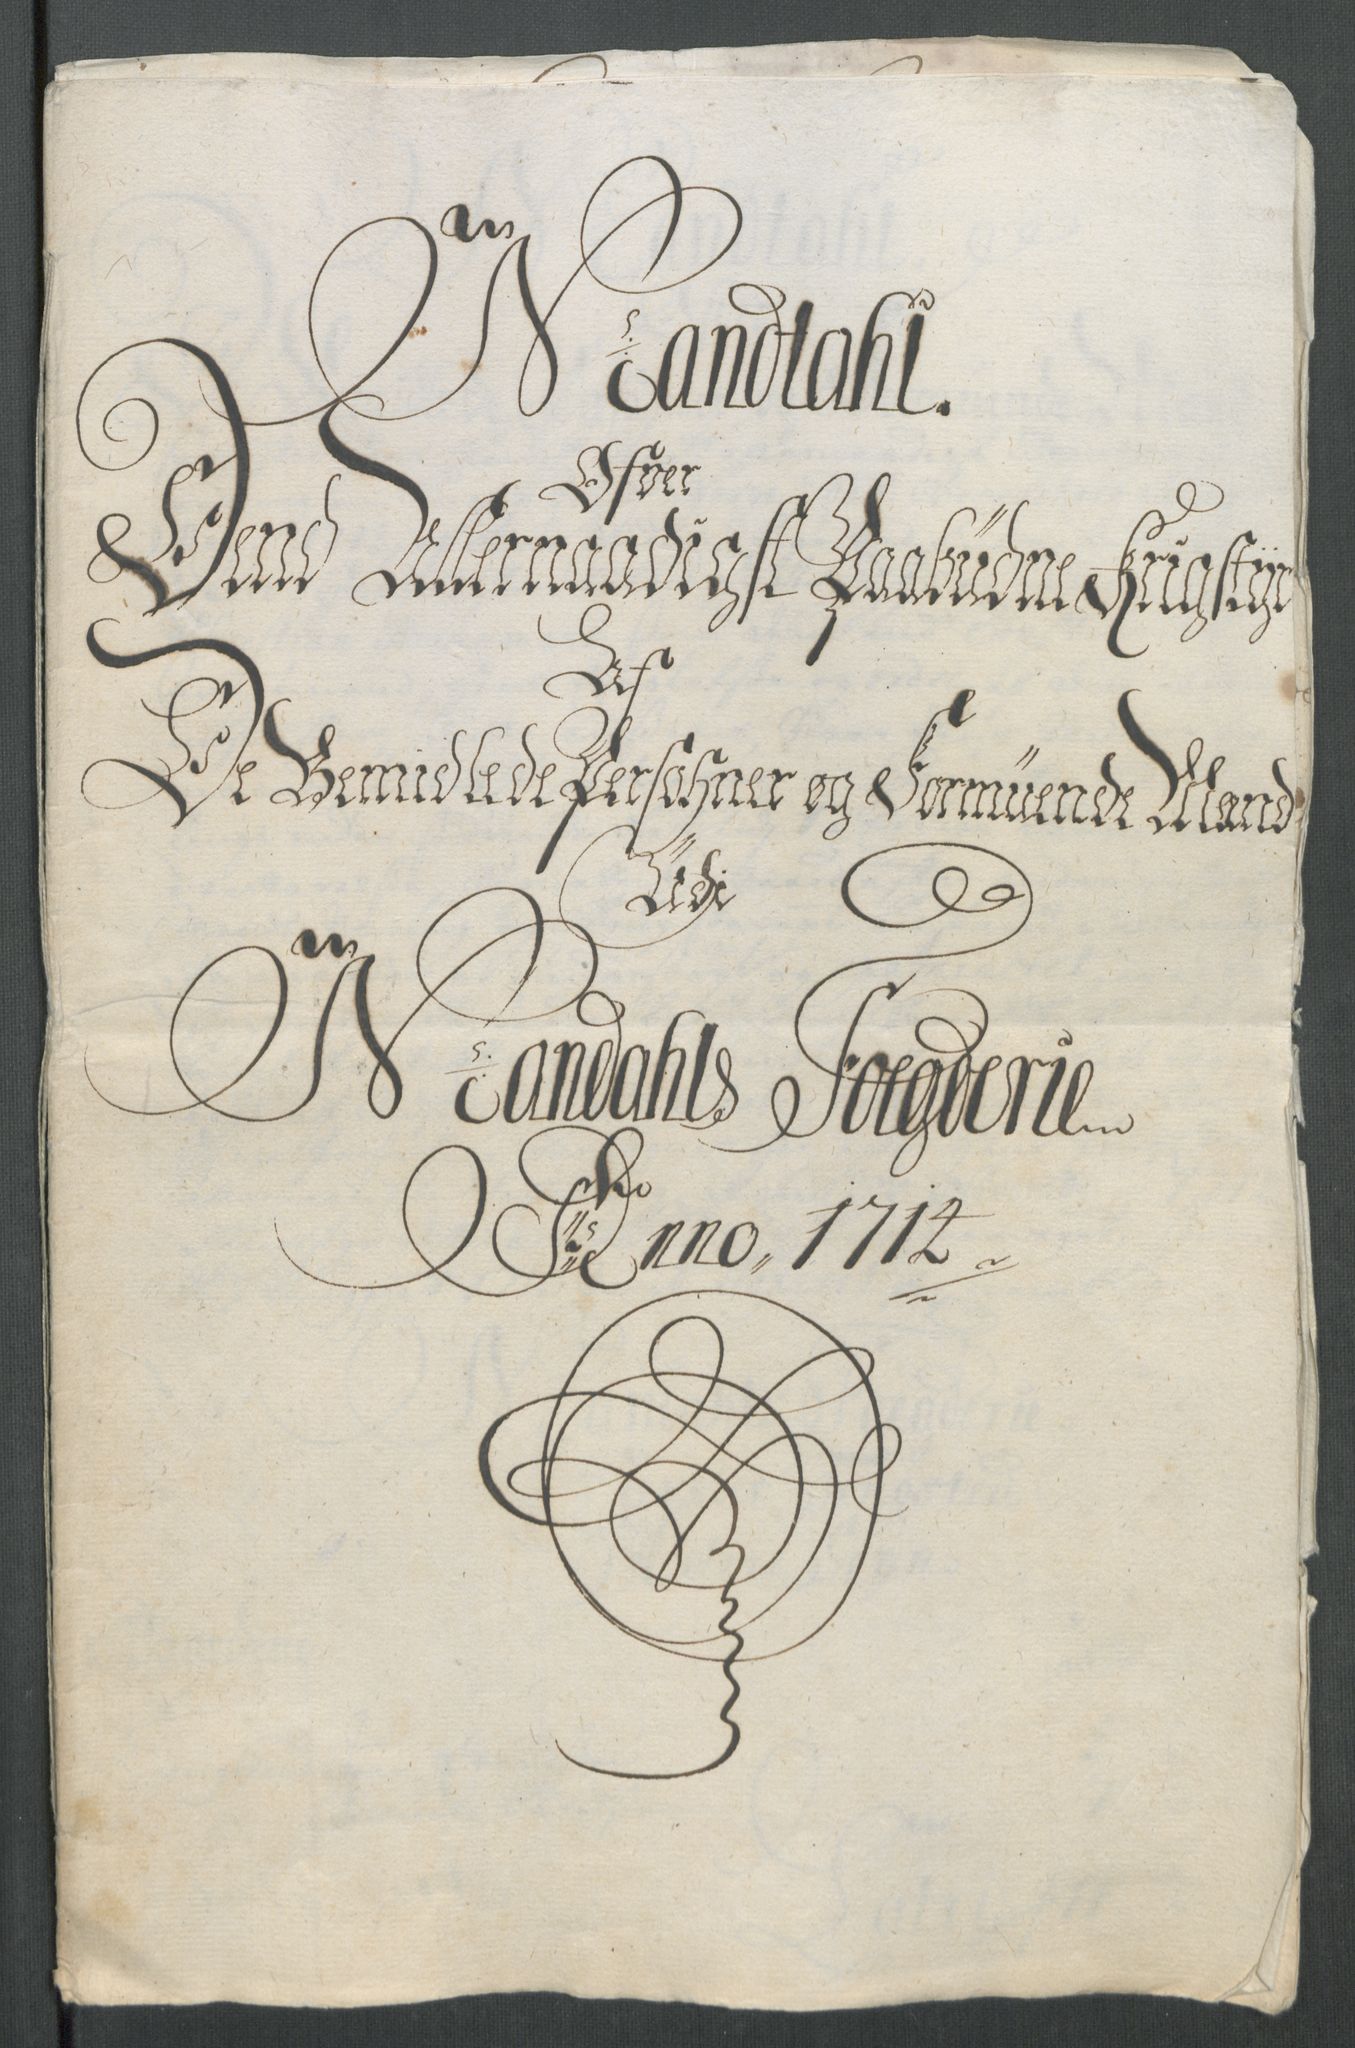 Mandtahl.
Ofver
Dend Allernaadigst Paabüdne Krigstyr
Af
De Bemidlede Persohner og Formüende Mænd
Üdi
Mandahls Foegderie
Anno, 1714